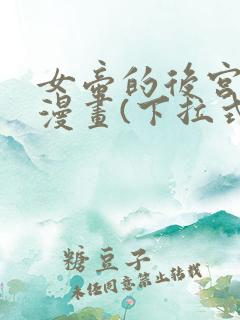 女帝的後宮
漫畫(下拉式
糖豆子
未經同意禁止轉載